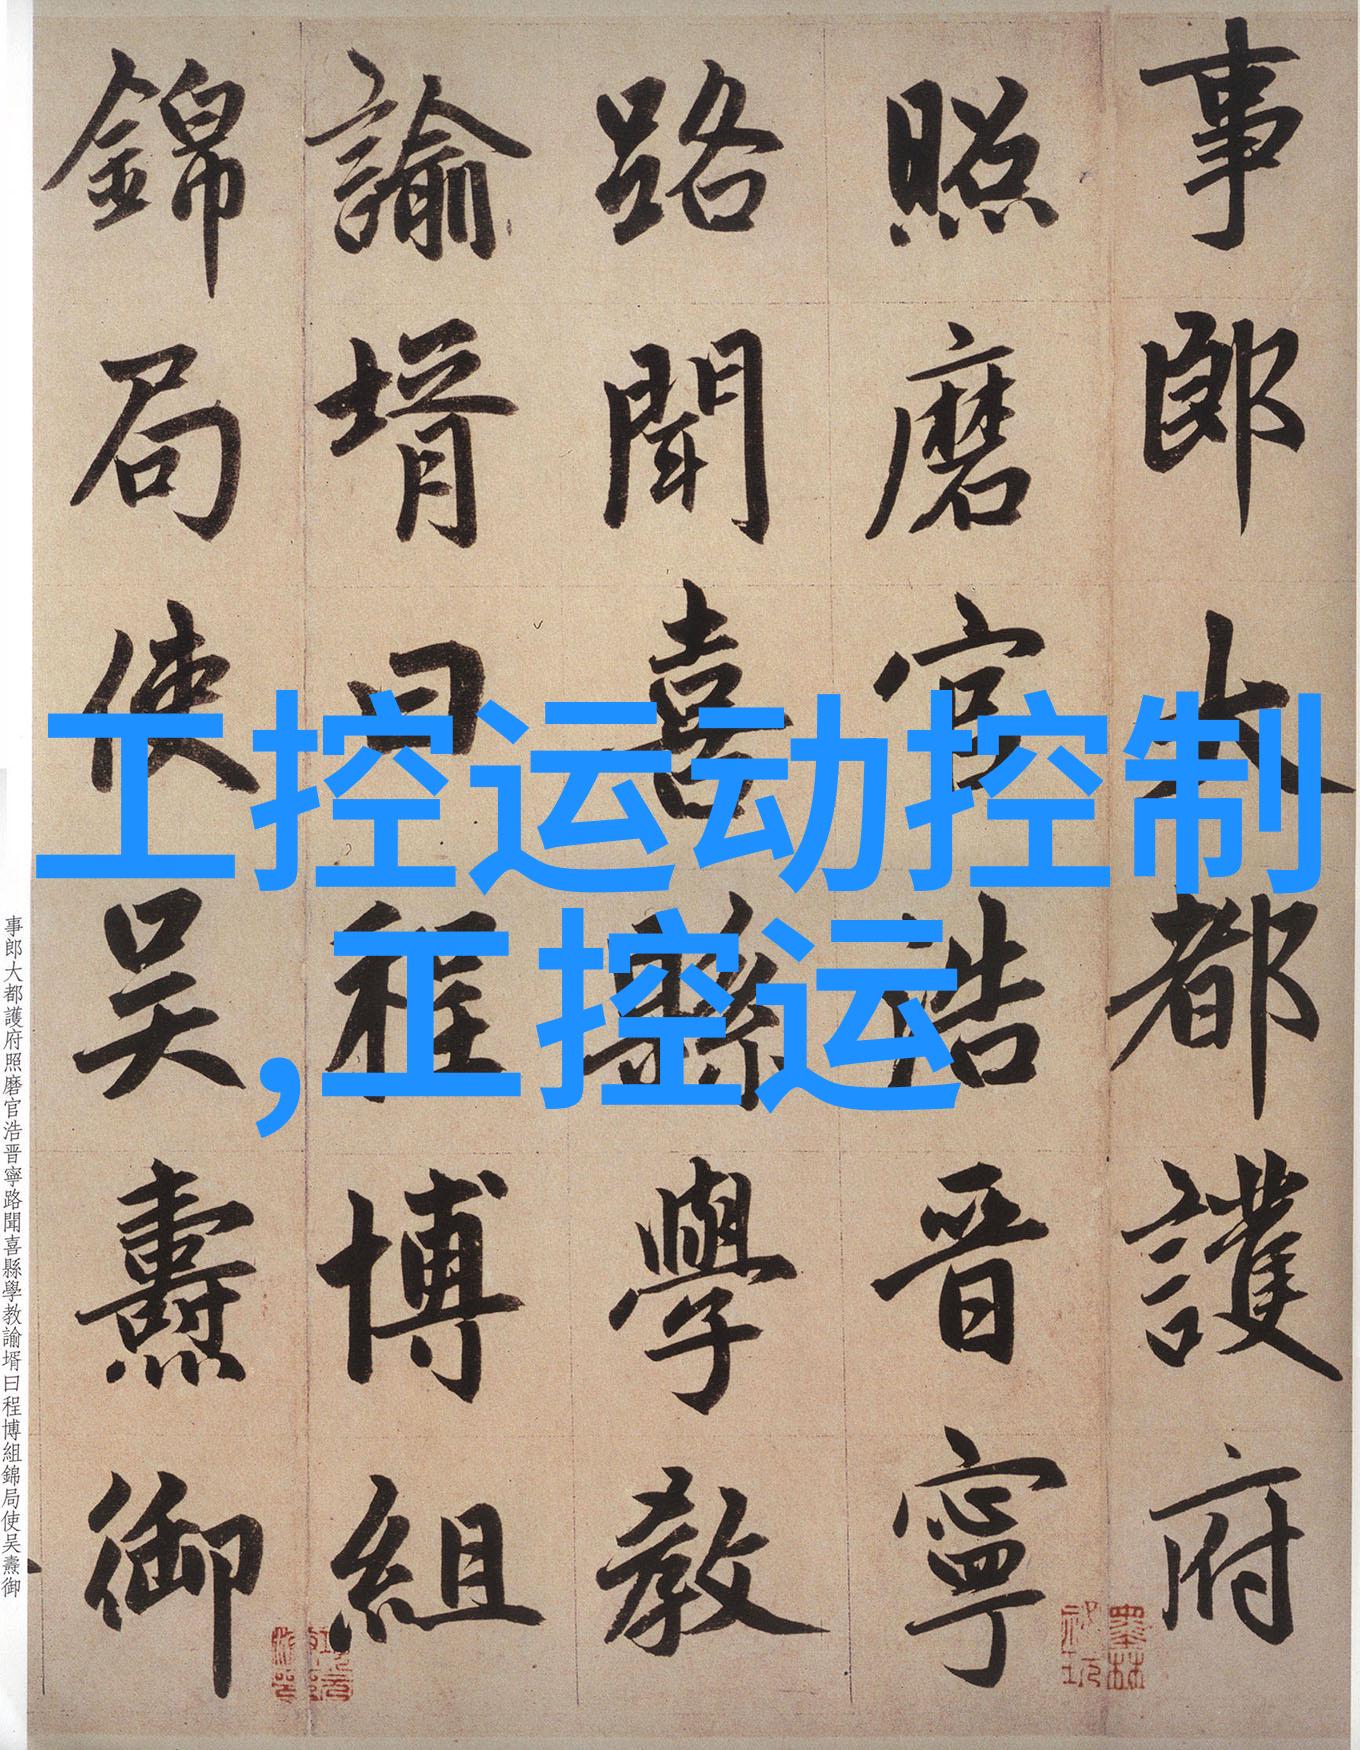 事郎大都護府
照磨官浩晋寧
路聞喜縣學教
諭壻曰程博組
錦局使吴燾御
工控运动控制
,工控运
事郎大都護府照磨官浩晋寧路聞喜縣學教諭壻曰程博組錦局使吴燾御